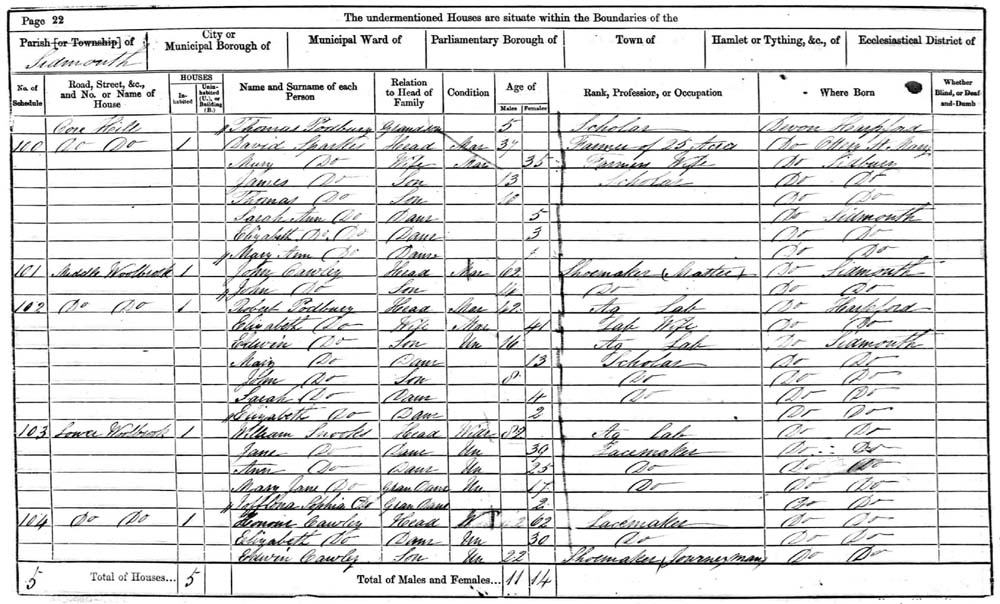 Page 22 The undermentioned Houses are situate within the Boundaries of the
Parish [or Township] of City or Municipal Borough of Municipal Ward of Parliamentary Borough of Town of Hamlet or Tything, &c., of Ecclesiastical District of
Sidmouth
No. of Schedule Road, Street, &c., and No. or Name of House HOUSES Inhabited Uninhabited (U.), or Building (B.) Name and Surname of each Person Relation to Head of Family Condition Age of Males Females Rank, Profession, or Occupation Where Born Whether Blind, or Deaf-and-Dumb
Core Hill Thomas Podbury Grandson 5 Scholar Devon Harpford
100 Do Do 1 David Sparkes Head Mar 37 Farmer of 25 Acres Do Ottery St. Mary
Mary Do Wife Mar 35 Farmers Wife Do
James Do Son 13 Scholar Do Do
Thomas Do Son 10 Do Do
Sarah Ann Do Daur 5 Do Sidmouth
Elizabeth Do Daur 3 Do Do
Mary Ann Do Daur Do Do
101 Middle Woolbrook 1 John Cawley Head Mar 62 Shoemaker (Master) Do Sidmouth
John Do Son 14 Do Do Do
102 Do Do 1 Robert Podbury Head Mar 42 Ag Lab Do Harpford
Elizabeth Do Wife Mar 41 Lab Wife Do Do
Edwin Do Son Un 16 Ag Lab Do Sidmouth
Mary Do Daur 13 Scholar Do Do
John Do Son 8 Do Do Do
Sarah Do Daur 4 Do Do Do
Elizabeth Do Daur 2 Do Do
103 Lower Woolbrook 1 William Snooks Head Widr 82 Ag Lab Do Do
Jane Do Daur Un 39 Lacemaker Do Do
Ann Do Daur Un 25 Do Do Do
Mary Jane Do Gran Daur Un 17 Do Do Do
Sophia Do Gran Daur 2 Do Do
104 Do Do 1 Cawley Head W 62 Lacemaker Do Do
Elizabeth Do Daur Un 30 Do Do Do
Edwin Cawley Son Un 22 Shoemaker (Journeyman) Do Do
5 Total of Houses... 5 Total of Males and Females... 11 14